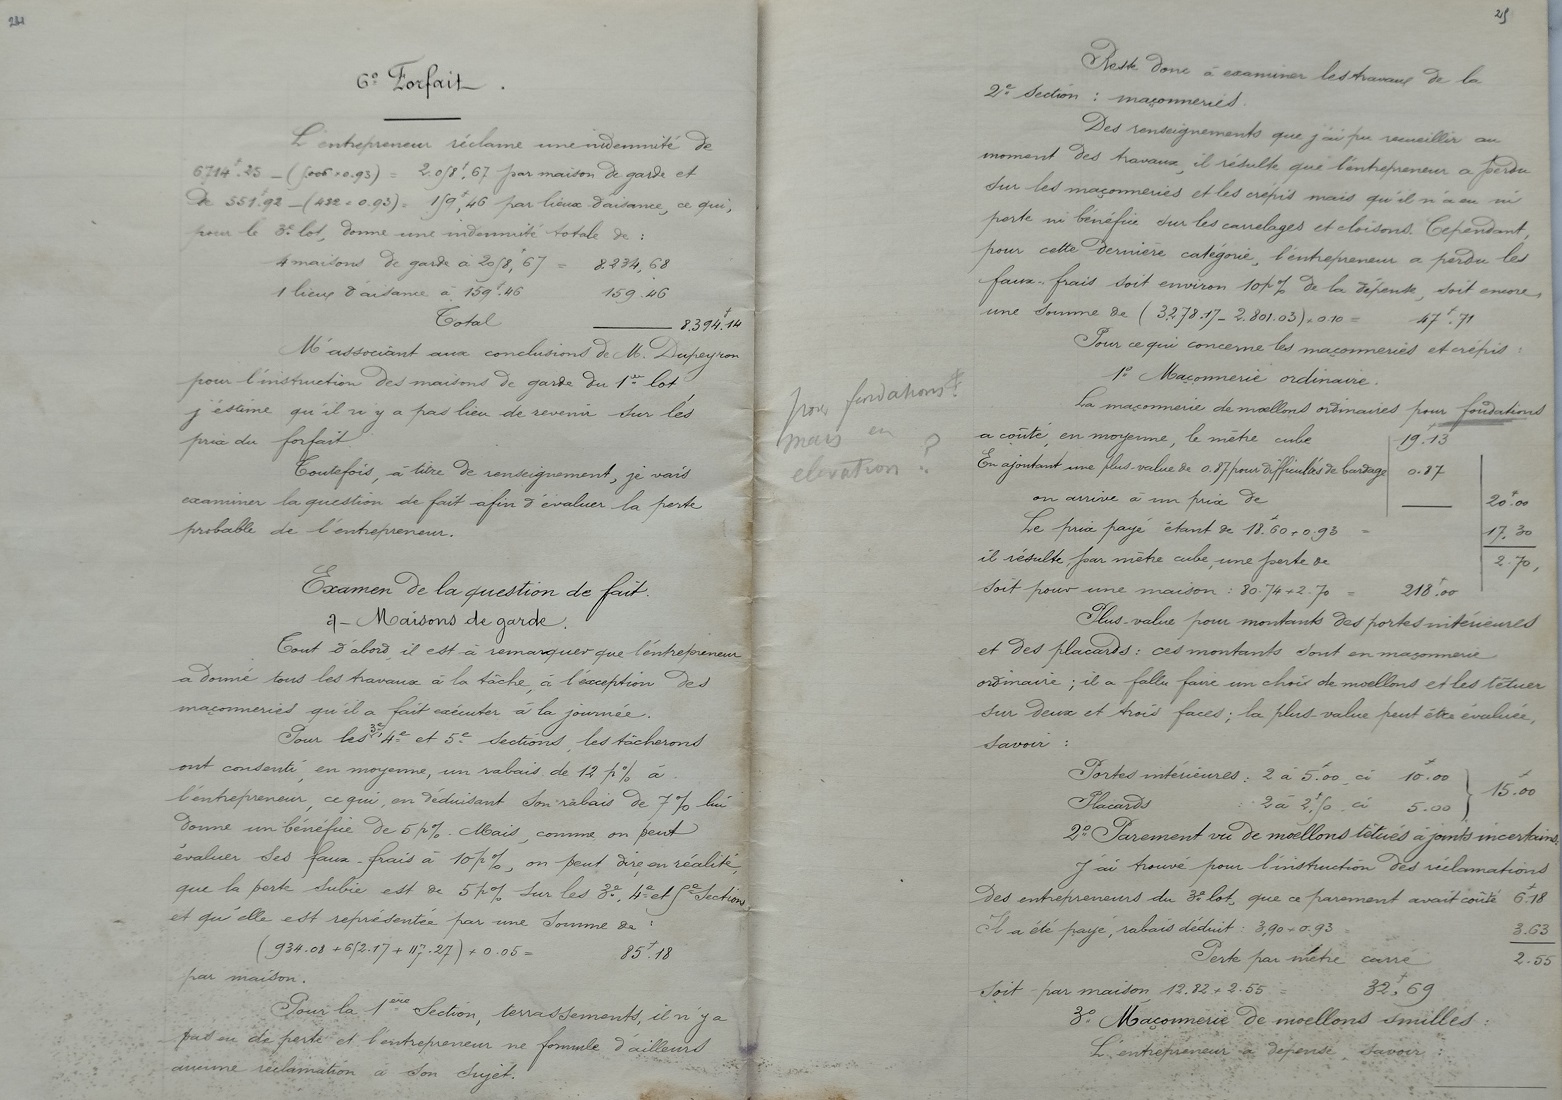 241
6° Forfait.
L'entrepreneur réclame une indemnité de
6714f.25 – (5006 × 0.93) = 2.058f,67 par maison de garde et
de 551f.92 – (422 × 0.93) = 159f,46 par lieux d'aisance, ce qui,
pour le 3e lot, donne une indemnité totale de :
4 maisons de garde à 2058f,67 = 8.234,68
1 lieux d'aisance à 159f.46 159.46
Total 8.394f.14
M'associant aux conclusions de M. Dupeyron
pour l'instruction des maisons de garde du 1er lot
j'estime qu'il n'y a pas lieu de revenir sur les
prix du forfait
Toutefois, à titre de renseignement, je vais
examiner la question de fait afin d'évaluer la perte
probable de l'entrepreneur.
Examen de la question de fait.
a – Maisons de garde.
Tout d'abord, il est à remarquer que l'entrepreneur
a donné tous les travaux à la tâche, à l'exception des
maçonneries qu'il a fait exécuter à la journée.
Pour les 3e, 4e et 5e sections, les tâcherons
ont consenti, en moyenne, un rabais de 12 p% à
l'entrepreneur, ce qui, en déduisant son rabais de 7% lui
donne un bénéfice de 5 p%. Mais, comme on peut
évaluer ses faux-frais à 10 p%, on peut dire, en réalité,
que la perte subie est de 5 p% sur les 3e, 4e et 5e Sections
et qu'elle est représentée par une somme de :
(934.08 + 652.17 + 117.27) × 0.05 = 85f.18
par maison.
Pour la 1ère Section, terrassements, il n'y a
pas eu de perte et l'entrepreneur ne formule d'ailleurs
aucune réclamation à son sujet.
25
Reste donc à examiner les travaux de la
2e Section : maçonneries.
Des renseignements que j'ai pu recueillir au
moment des travaux, il résulte que l'entrepreneur a perdu
sur les maçonneries et les crépis mais qu'il n'a eu ni
perte ni bénéfice sur les carrelages et cloisons. Cependant,
pour cette dernière catégorie, l'entrepreneur a perdu les
faux-frais soit environ 10 p% de la dépense, soit encore,
une somme de (3.278.17 – 2.801.03) × 0.10 = 47f.71
Pour ce qui concerne les maçonneries et crépis :
1° Maçonnerie ordinaire.
La maçonnerie de moellons ordinaires pour fondations
a coûté, en moyenne, le mètre cube 19.13
En ajoutant une plus-value de 0.87 pour difficultés de bardage 0.87
on arrive à un prix de 20f.00
Le prix payé étant de 18f.60 × 0.93 = 17.30
il résulte par mètre cube, une perte de 2.70,
soit pour une maison : 80.74 × 2.70 = 218f.00
pour fondations ?
mais en
élévation ?
Plus-value pour montants des portes intérieures
et des placards : ces montants sont en maçonnerie
ordinaire ; il a fallu faire un choix de moellons et les têtuer
sur deux et trois faces ; la plus-value peut être évaluée,
savoir :
Portes intérieures : 2 à 5f.00, ci 10f.00
Placards : 2 à 2f.50, ci 5.00 } 15f.00
2° Parement vu de moellons têtués à joints incertains.
J'ai trouvé pour l'instruction des réclamations
des entrepreneurs du 3e lot, que ce parement avait coûté 6f.18
Il a été payé, rabais déduit : 3,90 × 0.93 = 3.63
Perte par mètre carré 2.55
soit par maison 12.82 × 2.55 = 32f,69
3° Maçonnerie de moellons smillés :
L'entrepreneur a dépensé, savoir :